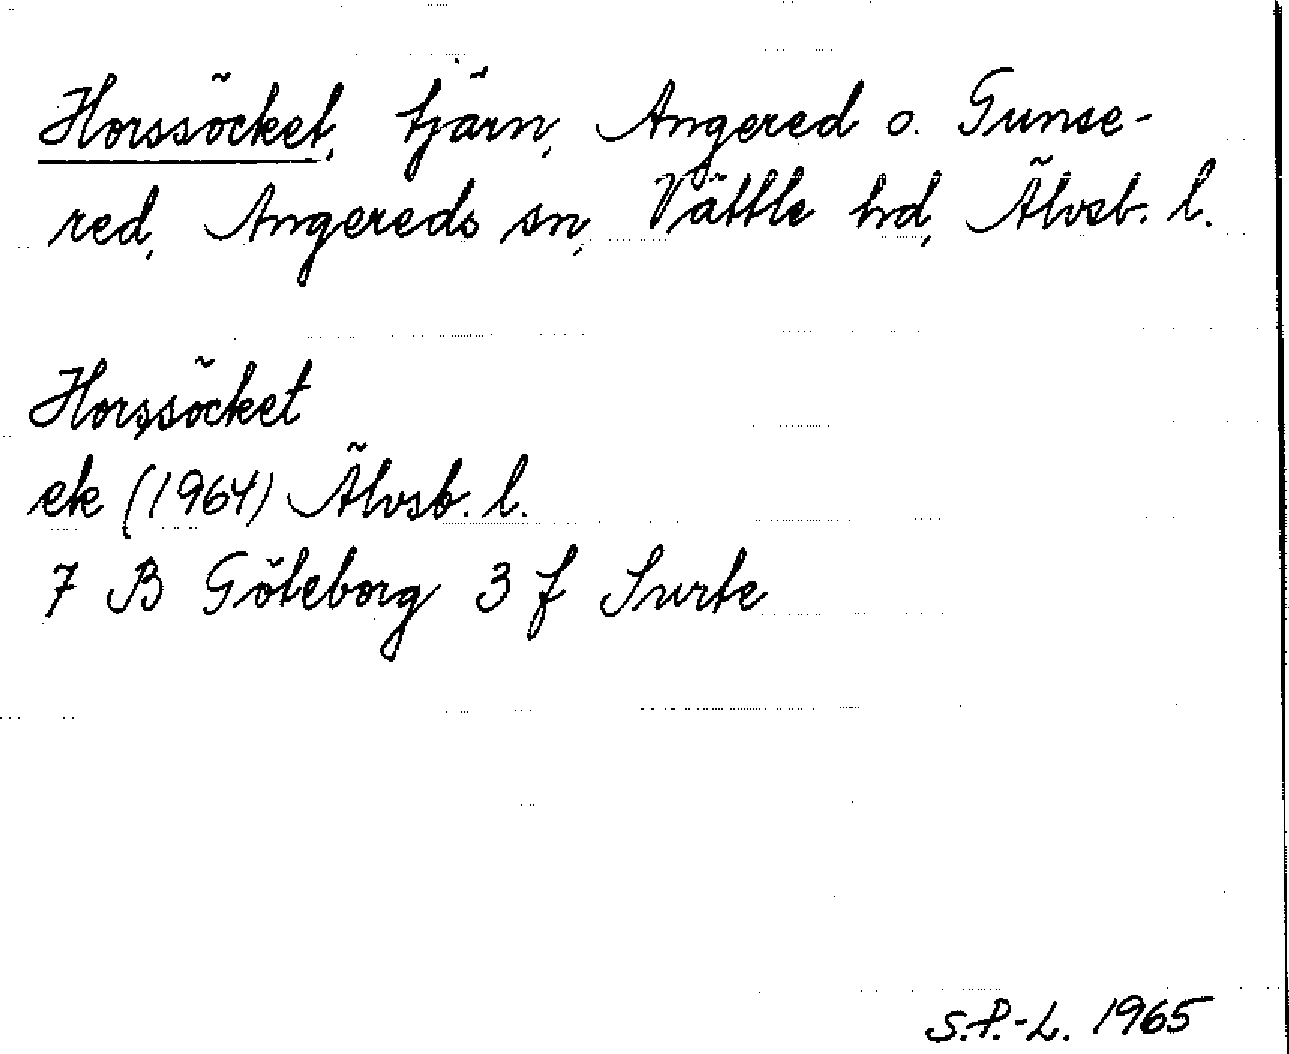 Horssöcket, tjärn, Angered o. Gunse-
red, Angereds sn, Vättle hd, Älvsb. l.
Horssöcket
ek (1964) Älvsb. l.
7 B Göteborg 3 f Surte
S.P.-L. 1965